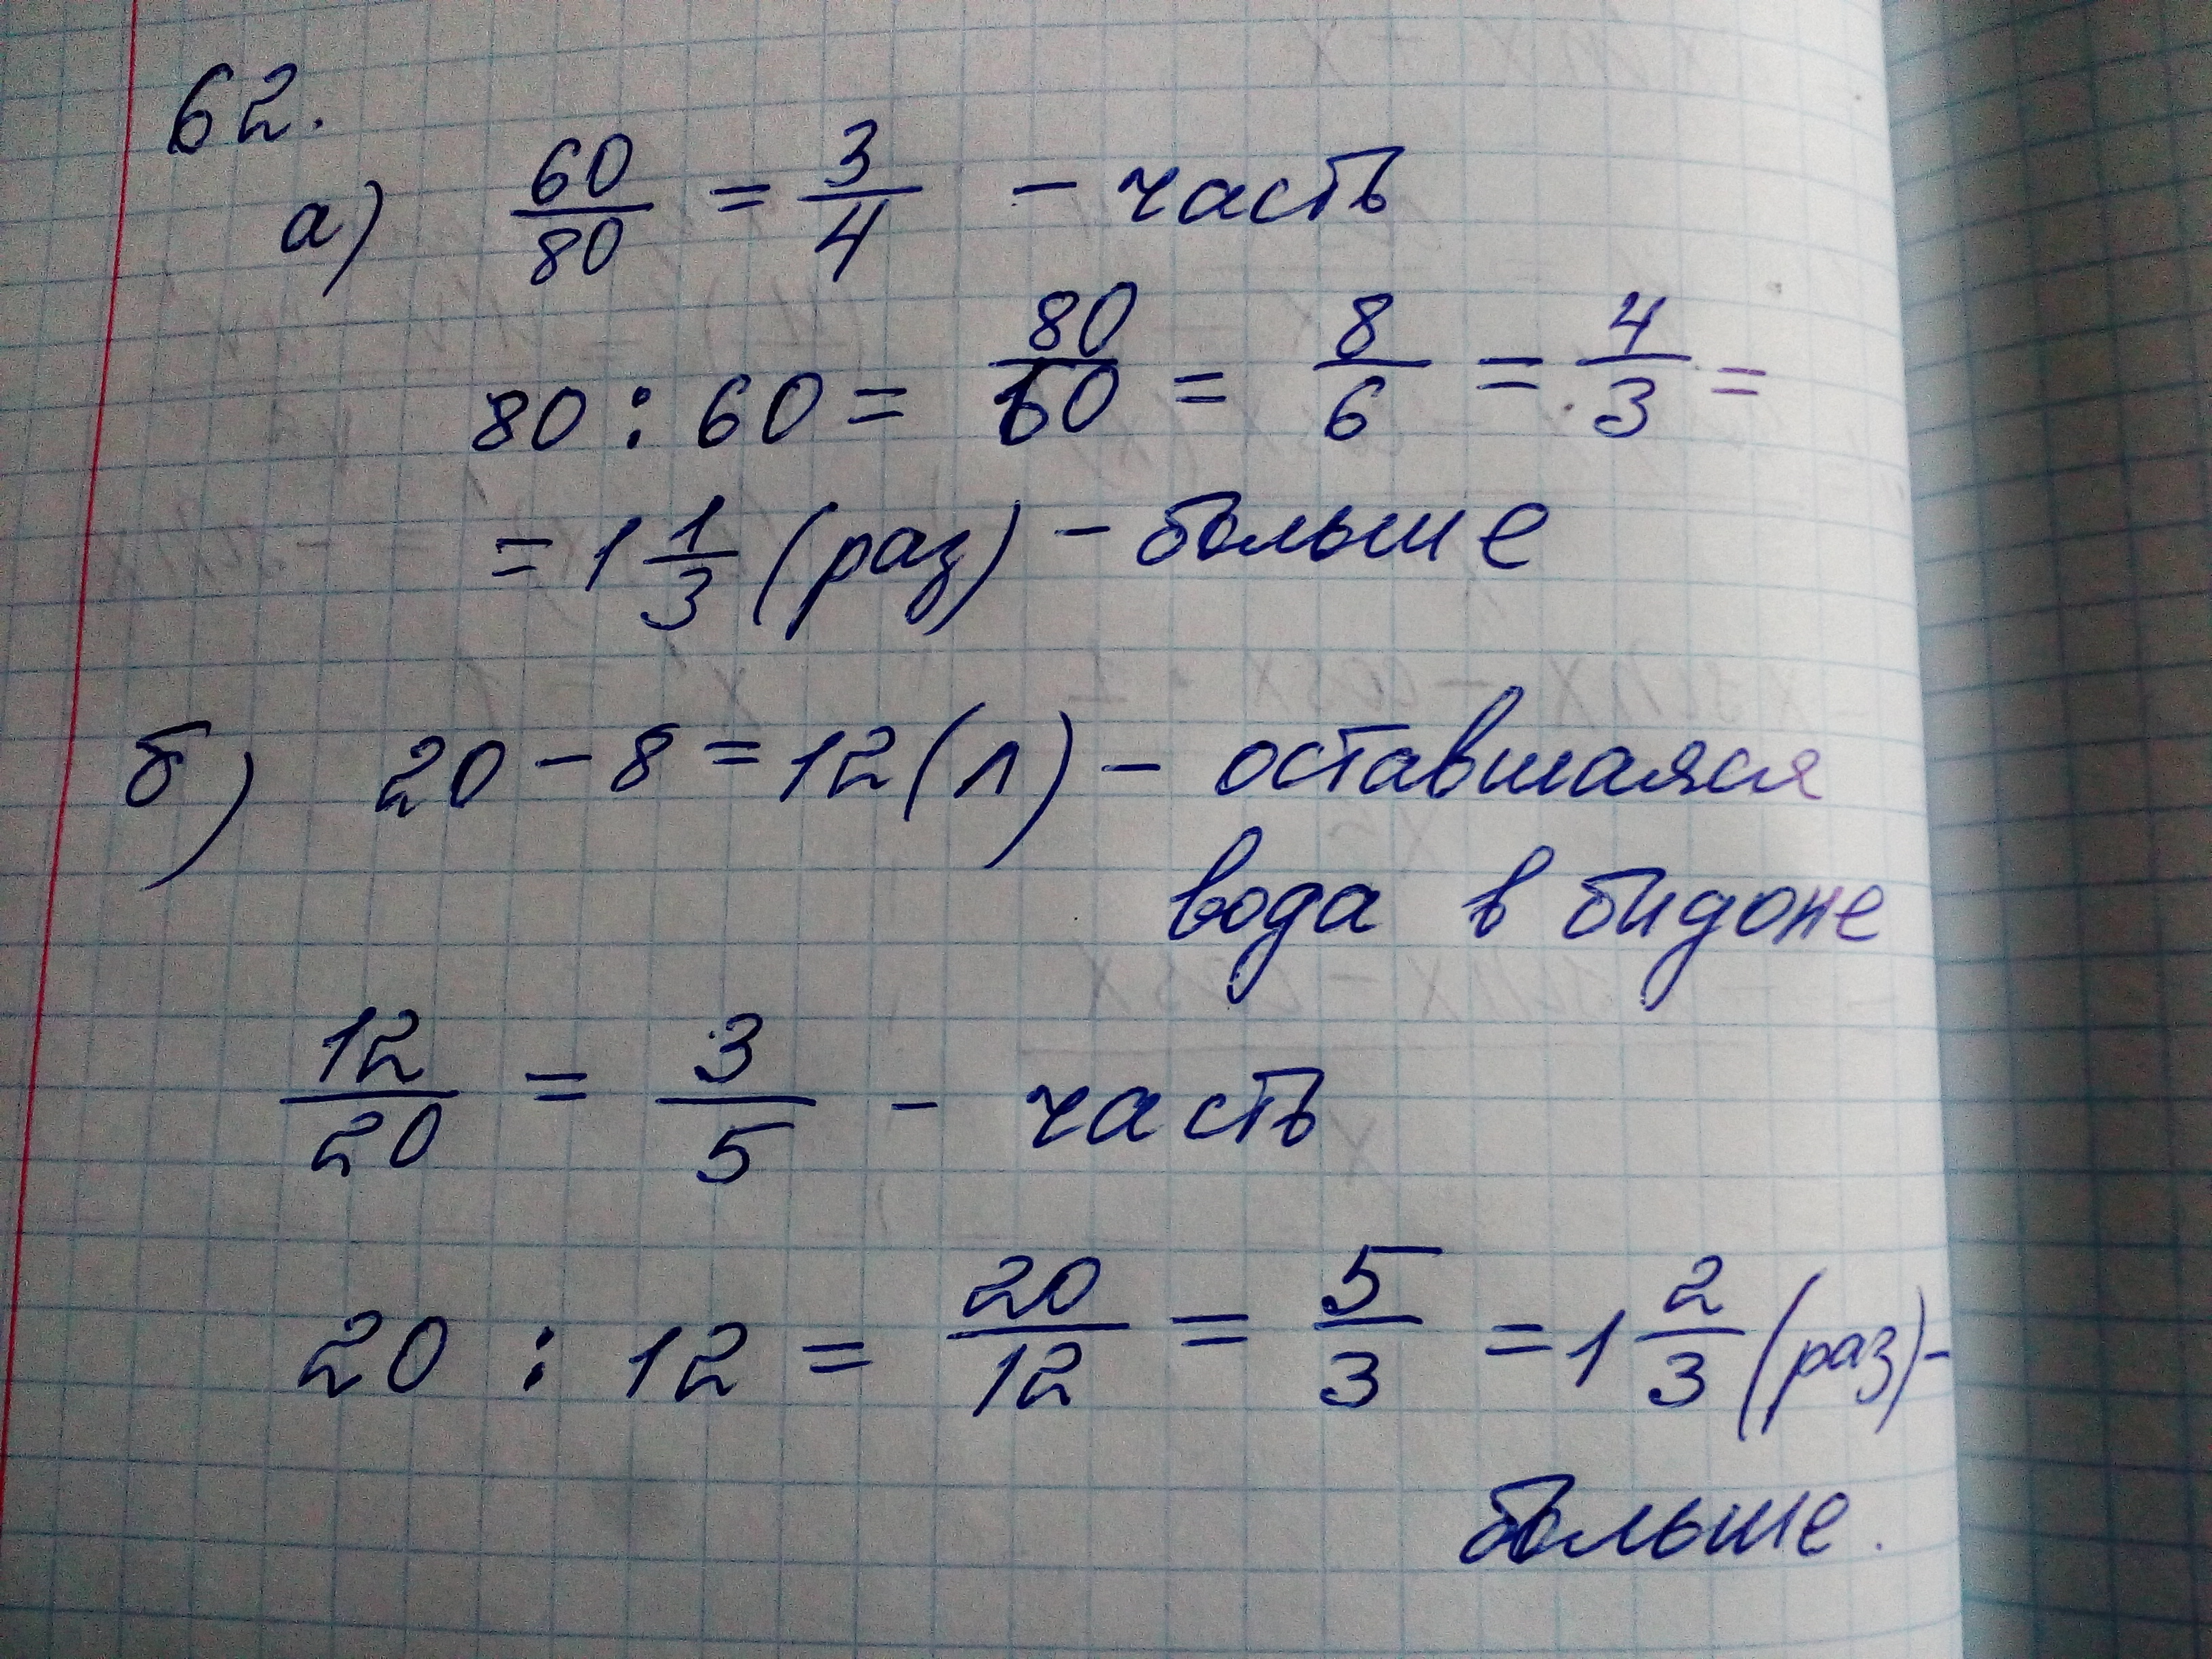 62.
а) 60/80 = 3/4 - часть
80 : 60 = 80/60 = 8/6 = 4/3 =
= 1 1/3 (раз) - больше
б) 20 - 8 = 12 (л) - оставшаяся
вода в бидоне
12/20 = 3/5 - часть
20 : 12 = 20/12 = 5/3 = 1 2/3 (раз) -
больше.